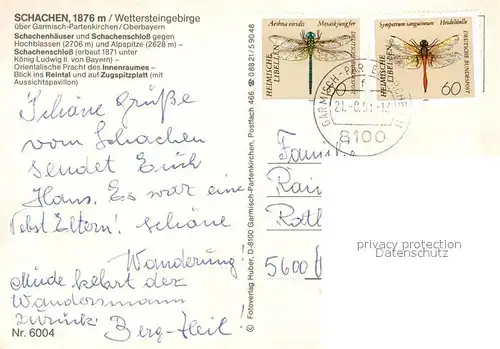 SCHACHEN, 1876 m / Wettersteingebirge
über Garmisch-Partenkirchen / Oberbayern
Schachenhäuser und Schachenschloß gegen
Hochblassen (2706 m) und Alpspitze (2628 m) –
Schachenschloß (erbaut 1871 unter
König Ludwig II. von Bayern) –
Orientalische Pracht des Innenraumes –
Blick ins Reintal und auf Zugspitzplatt (mit
Aussichtspavillon)
Schöne Grüße
vom Schachen
sendet Euch
Hans. Es war eine
Nebst Eltern! schöne
Wanderung!
Müde kehrt der
Wandersmann
zurück.
Berg-Heil!
Nr. 6004
© Fotoverlag Huber, D-8100 Garmisch-Partenkirchen, Postfach 466 ☎ 08821/59048
Mosaikjungfer
HEIMISCHE
LIBELLEN
DEUTSCHE BUNDESPOST
60
Sympetrum sanguineum Heidelibelle
HEIMISCHE
LIBELLEN
DEUTSCHE BUNDESPOST
60
GARMISCH-PARTENKIRCHEN
8100
Famil
Rai
5600
privacy protection
Watermark